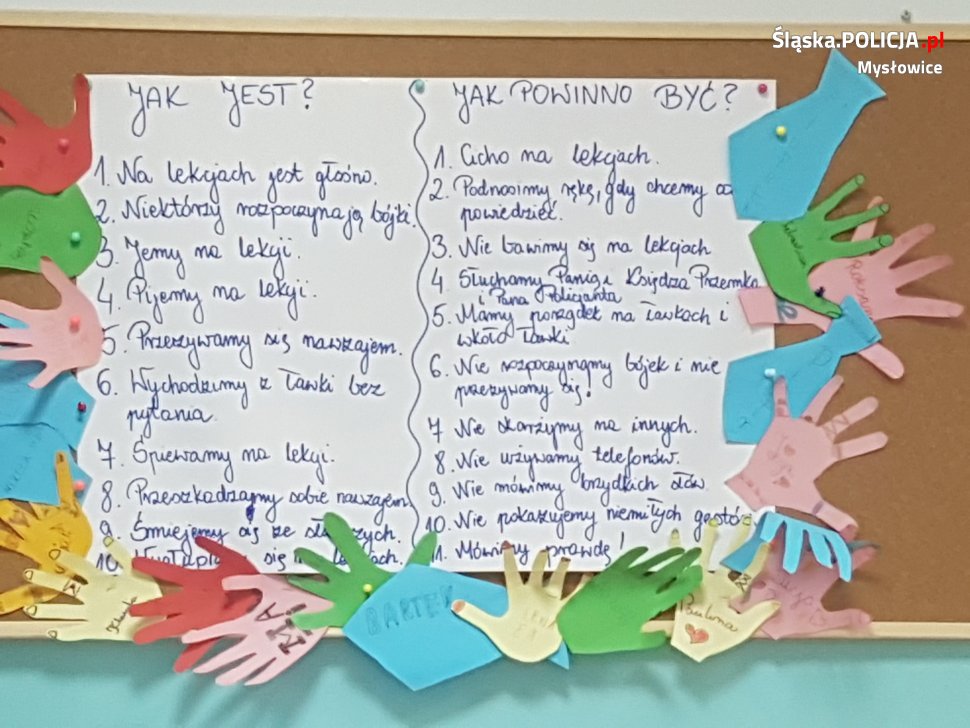 Śląska.POLICJA.pl
Mysłowice
JAK JEST?
1. Na lekcjach jest głośno.
2. Niektórzy rozpoczynają bójki.
3. Jemy na lekcji.
4. Pijemy na lekcji.
5. Przezywamy się nawzajem.
6. Wychodzimy z ławki bez
pytania.
7. Śpiewamy na lekcji.
8. Przeszkadzamy sobie nawzajem
9. Śmiejemy się ze
10. się
JAK POWINNO BYĆ?
1. Cicho na lekcjach.
2. Podnosimy rękę, gdy chcemy co
powiedzieć.
3. Nie bawimy się na lekcjach
4. Słuchamy Panią, Księdza Przemka
i Pana Policjanta
5. Mamy porządek na ławkach i
wkoło ławki.
6. Nie rozpoczynamy bójek i nie
przezywamy się!
7 Nie skarżymy na innych.
8. Nie używamy telefonów.
9. Nie mówimy brzydkich słów.
10. Nie pokazujemy niemiłych gestów
11. Mówimy prawdę!
BARTEK
Paulina